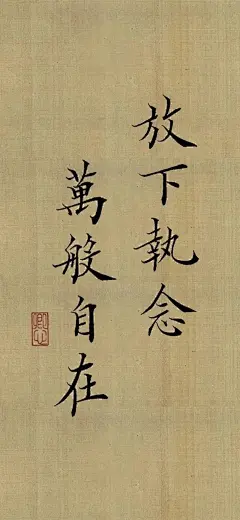 放下執念
萬般自在